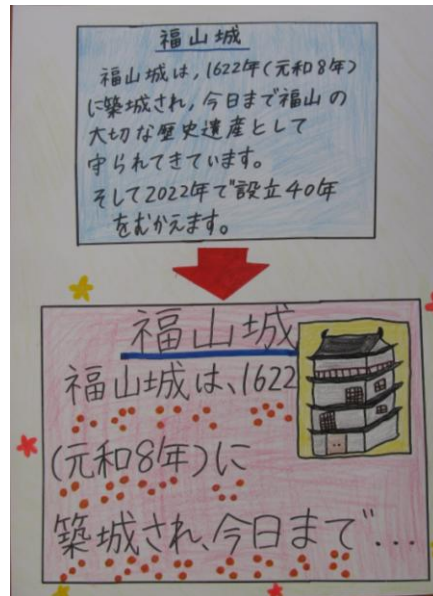 福山城
福山城は,1622年(元和8年)
に築城され,今日まで福山の
大切な歴史遺産として
守られてきています。
そして2022年で設立40年
をむかえます。
福山城
福山城は、1622
(元和8年)に
築城され、今日まで...